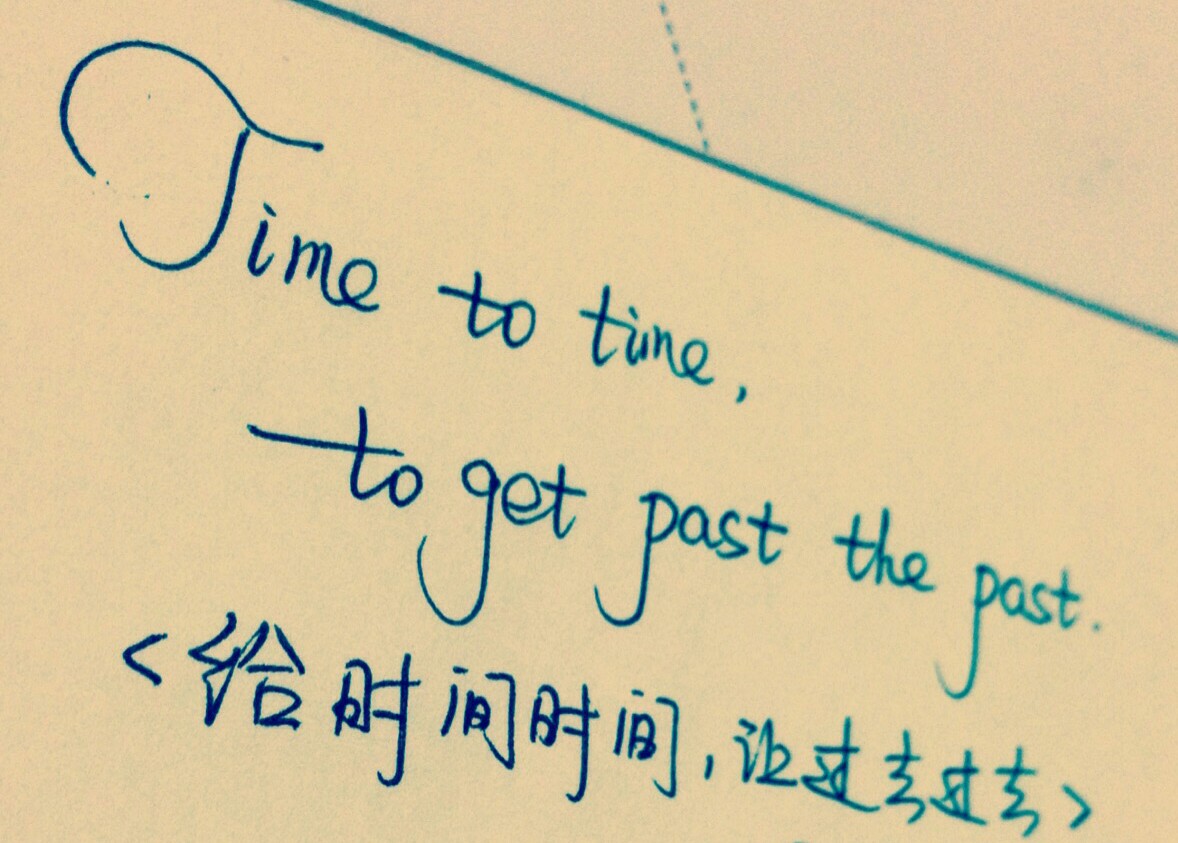 Time to time,
to get past the past.
<给时间时间,让过去过去>